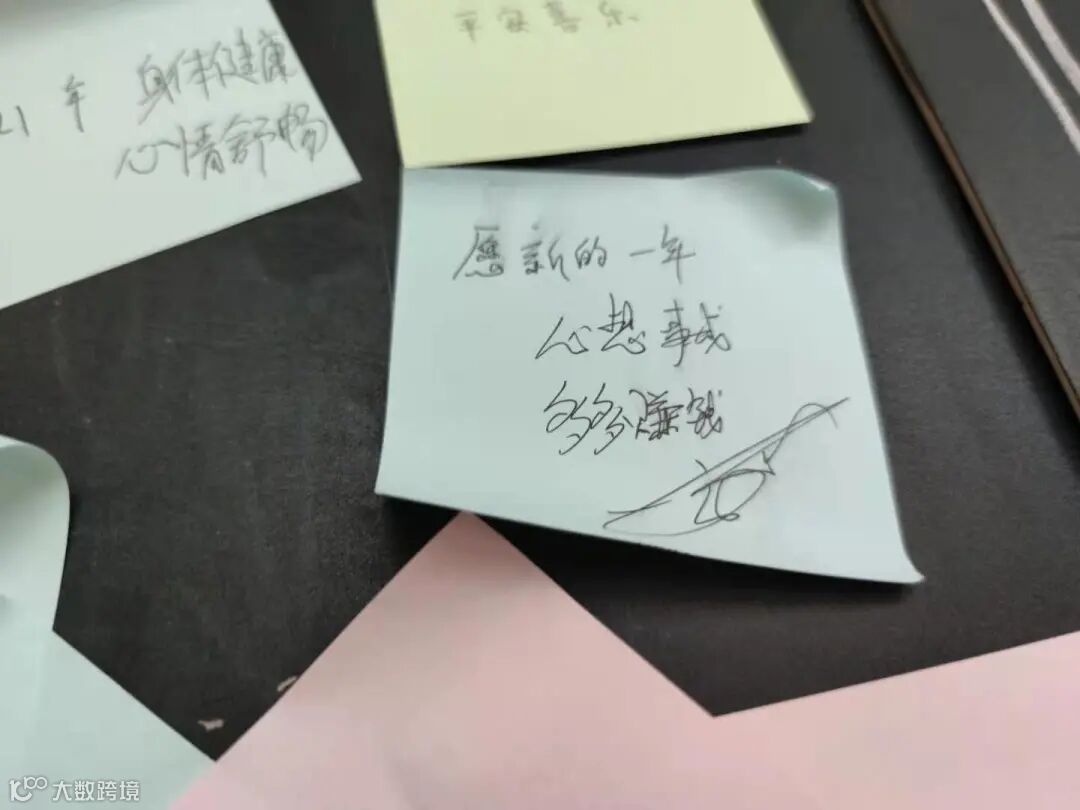 平安喜乐
21年 身体健康
心情舒畅
愿新的一年
心想事成
多多赚钱
大数跨境